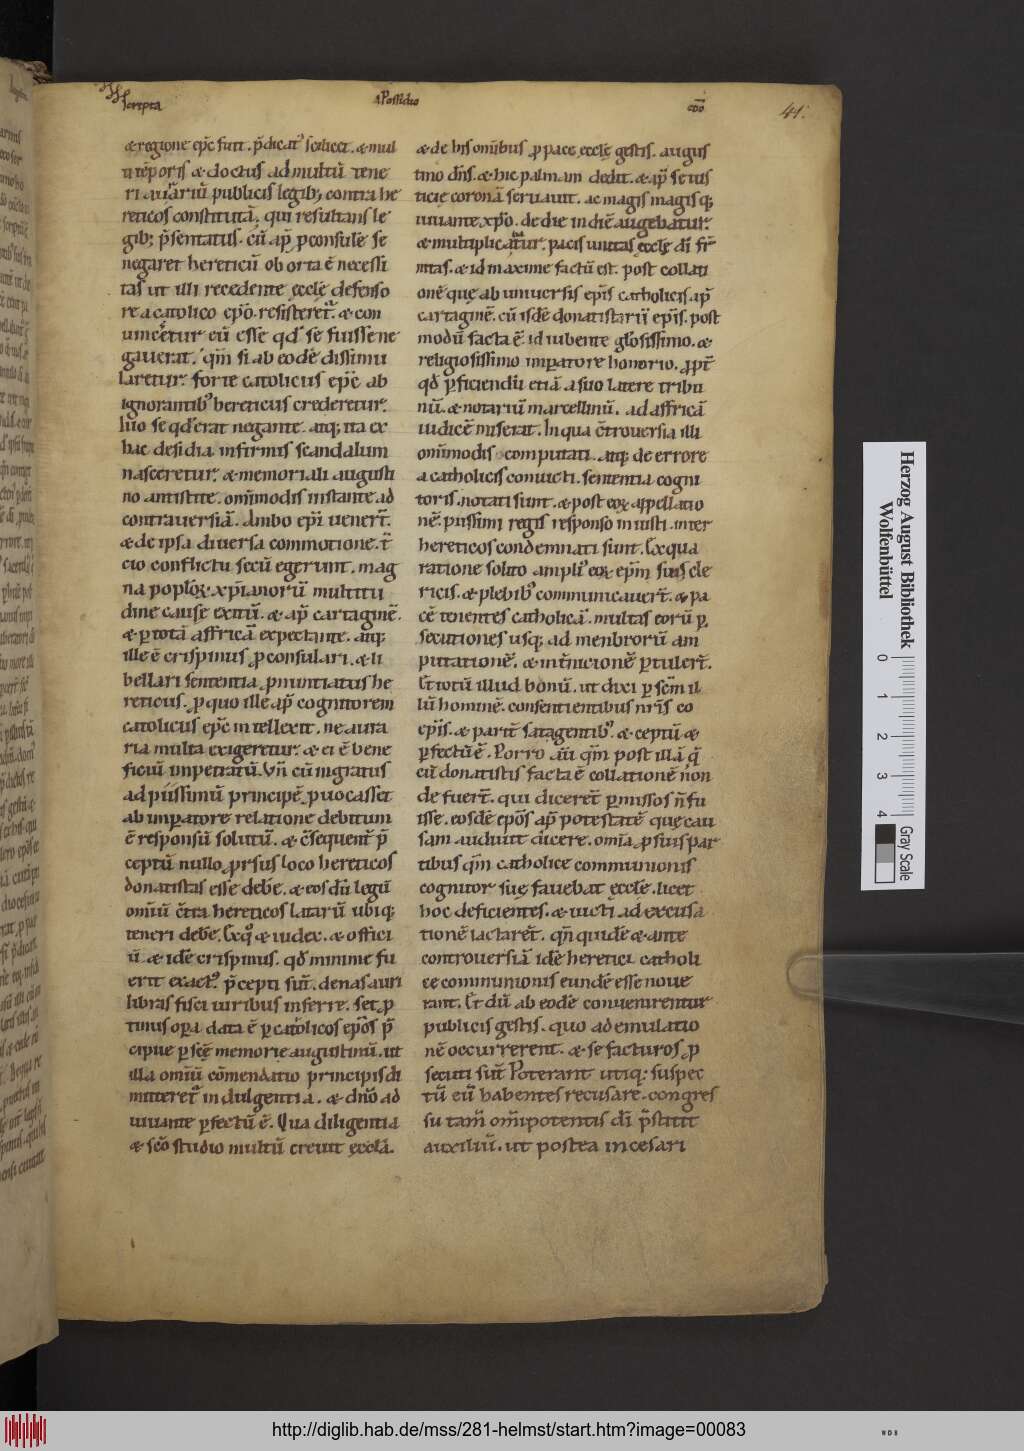 scripta
A Possidio
ep̄o
41.
æ regione ep̄c fuit. p̄dicat᷒ scilicet. æ mul
ti tēporis æ doctus ad multū tene
ri auariū publicis legib; contra he
reticos constitutā. qui resultans le
gib; p̄sentatus. cū ap̄ ꝓconsulē se
negaret hereticū ob orta ē necessi
tas ut illi recedente ęcclę defenso
re a catolico ep̄o. resisteret᷒. æ con
uinceretur eū esse qd̄ sē fuisse ne
gauerat. qm̄ si ab eodē dissimu
laretur. forte catolicus ep̄c ab
ignorantib᷒ hereticus crederetur.
luo se qd erat negante. atq; ita ex
hac desidia infirmis scandalum
nasceretur. æ memoriali augusti
no antistite. om̄imodis instante. ad
contrauersiā. Ambo ep̄i uenerт̄.
æ de ipsa diuersa commotione. t̄
cio conflictu secū egerunt. mag
na poploꝝ xp̄ianorū multitu
dine causę exitū. æ ap̄ cartaginē.
æ ꝑ totā affricā expectante. atq;
ille ē crispinus ꝓconsulari. æ li
bellari sententia ꝓnuntiatus he
reticus. ꝓ quo ille ap̄ cognitorem
catolicus ep̄c intellexit. ne aura
ria multa exigeretur. æ ei ē bene
ficiū impetratū. Vn̄ cū ingratus
ad piissimū principē ꝓuocasset
ab imꝑatore relatione debitum
ē responsū solutū. æ c̄sequent̄ p̄
ceptū nullo ꝓrsus loco hereticos
donatistas esse debē. æ eos dū legū
om̄iū c̄tra hereticos latarū ubiq;
teneri debē. Exq᷒ æ iudex. æ offici
ū. æ idē crispinus. qd̄ minime fu
erit exact᷒. p̄cepti sūt. denas auri
libras fisci iuribus inferre. set ꝓ
tinus oꝑa data ē ꝑ catolicos ep̄os p̄
cipue ꝑ scę memorie augustinū. ut
illa om̄iū com̄endatio principis di
mitteret᷒ indulgentia. æ dn̄o ad
iuuante ꝑfectū ē. Qua diligentia
æ sc̄o studio multū creuit ęcclā.
æ de his om̄ibus ꝓ pace ęcclę gestis. augus
tino dn̄s. æ hic palmam dedit. æ ap̄ se ius
ticie coronā seruauit. ac magis magisq;
iuuante xp̄o. de die in diē augebatur.
æ multiplicabatur. pacis unitas ęcclę di fr̄
nitas. æ id maxime factū est. post collati
onē quę ab uniuersis ep̄is catholicis ap̄
cartaginē. cū isdē donatistarij ep̄is. post
modū facta ē. id iubente gl̄osissimo. æ
religiosissimo imꝑatore honorio. ꝓpt̄
qd̄ ꝑficiendū etiā a suo latere tribu
nū. æ notariū marcellinū. ad affricā
iudicē miserat. In qua c̄trouersia illi
om̄imodis computati. atq; de errore
a catholicis conuicti. sententia cogni
toris. notati sunt. æ post eoꝝ appellatio
nē. piissimi regis responso iniusti. inter
hereticos condemnati sunt. Ex qua
ratione solito ampli᷒ eoꝝ ep̄m suis cle
ricis. æ plebib᷒ communicauert̄. æ pa
cē tenentes catholicā. multas eorū ꝑ
secutiones usq; ad menbrorū am
putationē. æ int̄nicionē ꝑtulert̄.
Et totū illud bonū. ut dixi ꝑ scm̄ il
lū hominē. consentientibus nr̄is co
ep̄is. æ parit̄ satagentib᷒. æ ceptū æ
ꝑfectū ē. Porro aūt qm̄ post illā q̄
cū donatistis facta ē collationē non
de fuert̄. qui diceret̄ ꝑmissos n̄ fu
isse. eosdē ep̄os ap̄ potestatē que cau
sam audiuit dicere. om̄ia ꝓ suis par
tibus qm̄ catholice communionis
cognitor suę fauebat ęcclę. licet
hoc deficientes. æ uicti. ad excusa
tionē iactaret̄. qn̄ quidē æ ante
controuersiā idē heretici catholi
ce communionis eundē esse noue
rant. Et dū ab eodē conuenirentur
publicis gestis. quo ad emulatio
nē occurrerent. æ se facturos ꝓ
secuti sūt. Poterant utiq; suspec
tū eū habentes recusare. congres
su tam̄ om̄ipotentis di p̄stitit
auxiliū. ut postea in cesari
Herzog August Bibliothek
Wolfenbüttel
0 1 2 3 4
Gray Scale
http://diglib.hab.de/mss/281-helmst/start.htm?image=00083
WDB